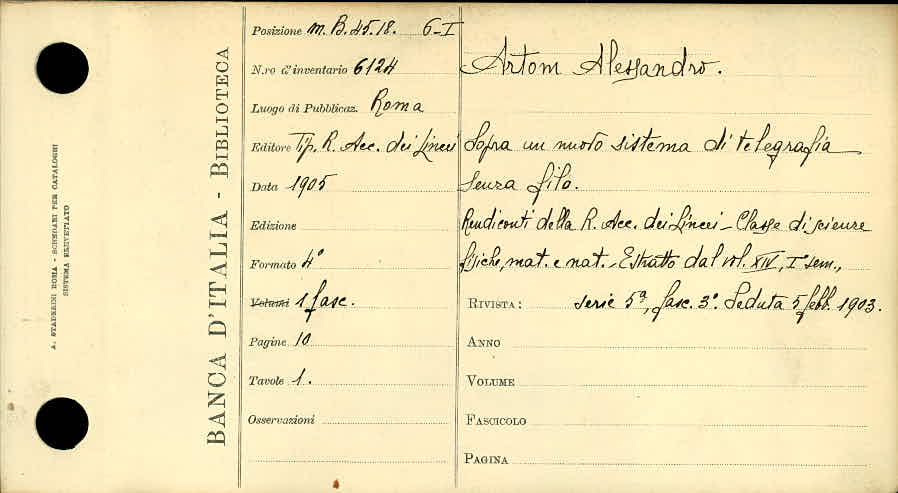 A. STADERINI ROMA - SCHEDARI PER CATALOGHI
SISTEMA BREVETTATO
BANCA D'ITALIA - BIBLIOTECA
Posizione m. B. 45.18. 6-I
N.ro d'inventario 6124
Luogo di Pubblicaz. Roma
Editore Tip. R. Acc. dei Lincei
Data 1905
Edizione
Formato 4°
Volumi 1 fasc.
Pagine 10
Tavole 1.
Osservazioni
Artom Alessandro.
Sopra un nuovo sistema di telegrafia
senza filo.
Rendiconti della R. Acc. dei Lincei - Classe di scienze
fisiche, mat. e nat. - Estratto dal vol. XIV, I° sem.,
RIVISTA: serie 5ª, fasc. 3° Seduta 5 febb. 1903.
ANNO
VOLUME
FASCICOLO
PAGINA